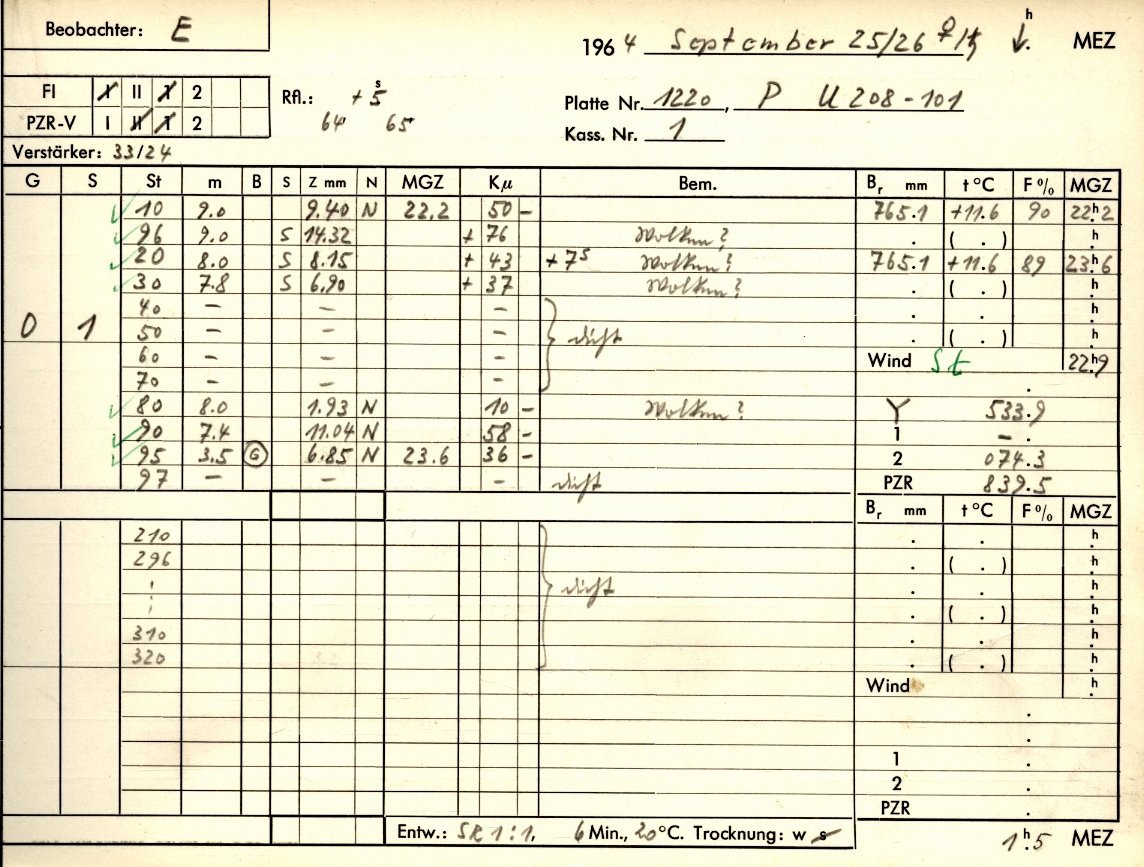 Beobachter: E
1964 September 25/26 ♀/♄ ↓. h MEZ
FI I II 1 2
Rfl.: + 5 s
Platte Nr. 1220, P U 208-101
PZR-V I II 1 2
64 65
Kass. Nr. 1
Verstärker: 33/24
G S St m B S Z mm N MGZ Kμ Bem. Br mm t °C F % MGZ
10 9.0 9.40 N 22.2 50 - 765.1 +11.6 90 22h.2
96 9.0 S 14.32 + 76 Wolken? . ( . ) h.
20 8.0 S 8.15 + 43 +7s Wolken? 765.1 +11.6 89 23h.6
30 7.8 S 6.90 + 37 Wolken? . ( . ) h.
40 – – – . . h.
0 1 50 – – – dicht . ( . ) h.
60 – – – Wind St 22h.9
70 – – – .
80 8.0 1.93 N 10 - Wolken? Y 533.9
90 7.4 11.04 N 58 - 1 – .
95 3.5 G 6.85 N 23.6 36 - 2 074.3
97 – – – dicht PZR 839.5
Br mm t °C F % MGZ
210 . . h.
296 . ( . ) h.
dicht . . h.
. ( . ) h.
310 . . h.
320 . ( . ) h.
Wind h.
.
.
1 .
2 .
PZR .
Entw.: 1:1, 6 Min., 20 °C. Trocknung: w s
1h.5 MEZ